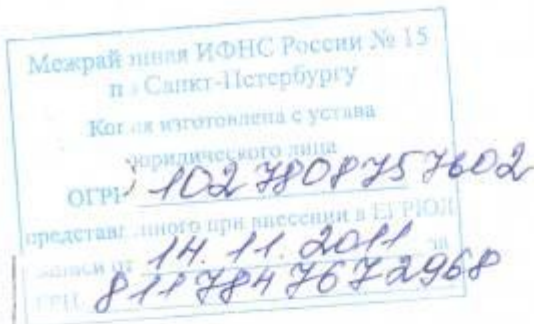 Межрайонная ИФНС России № 15
по Санкт-Петербургу
Копия изготовлена с устава
юридического лица
ОГРН 1027808757602
представленного при внесении в ЕГРЮЛ
записи от 14.11.2011 за
ГРН 8117847672968